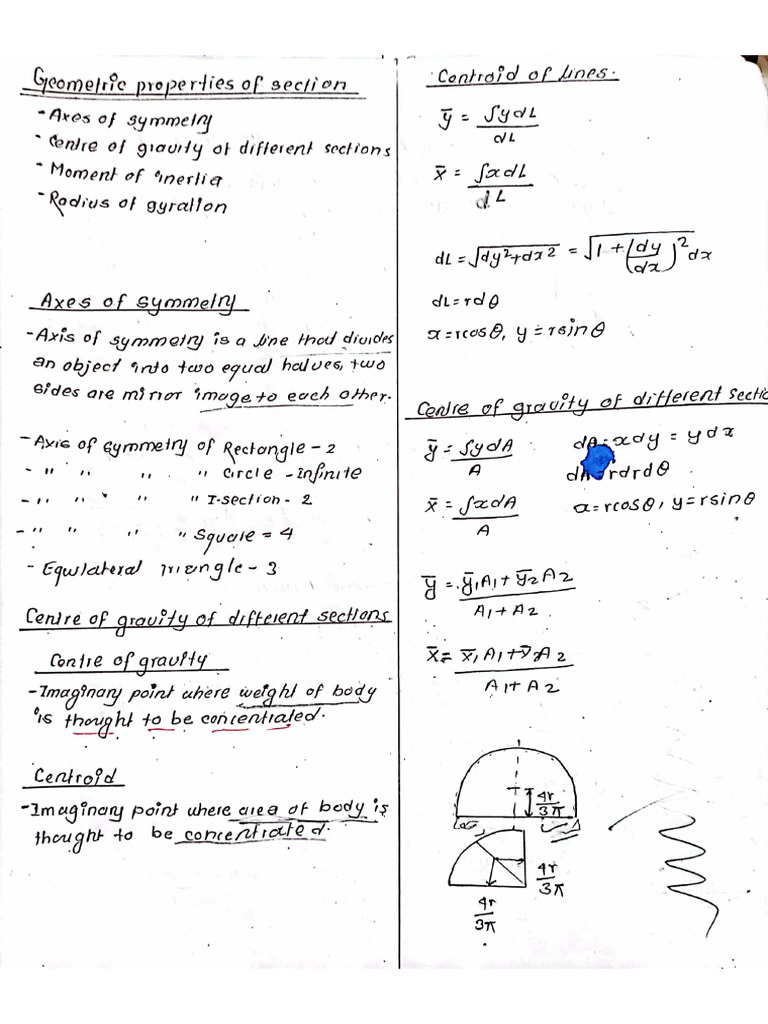 Geometric properties of section
- Axes of symmetry
- Centre of gravity of different sections
- Moment of inertia
- Radius of gyration
Axes of symmetry
- Axis of symmetry is a line that divides
an object into two equal halves, two
sides are mirror image to each other.
- Axis of symmetry of Rectangle - 2
- " " " " circle - Infinite
- " " " " I-section - 2
- " " " " Square = 4
- Equilateral Triangle - 3
Centre of gravity of different sections
Centre of gravity
- Imaginary point where weight of body
is thought to be concentrated.
Centroid
- Imaginary point where area of body is
thought to be concentrated.
Centroid of lines.
ȳ = ∫ydL / dL
x̄ = ∫xdL / dL
dL = √(dy²+dx²) = √(1+(dy/dx)²) dx
dL = rdθ
x = rcosθ, y = rsinθ
Centre of gravity of different sectio
ȳ = ∫ydA / A dA = xdy = ydx
dA = rdrdθ
x̄ = ∫xdA / A x = rcosθ, y = rsinθ
ȳ = ȳ₁A₁ + ȳ₂A₂ / A₁+A₂
x̄ = x̄₁A₁ + x̄₂A₂ / A₁+A₂
4r/3π
4r/3π
4r/3π